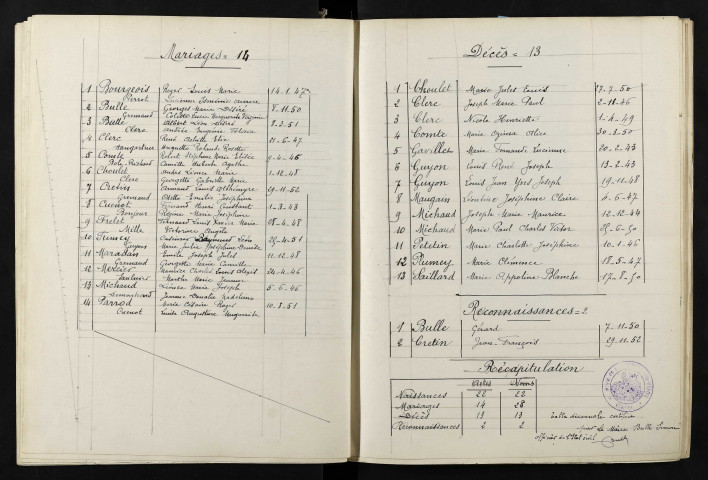 Mariages = 14
1 Bourgeois Roger Louis Marie 14.1.47
Perrot Lucienne
2 Bulle Georges Marie Désiré 8.11.50
Gremaud Colette Lucie Marguerite Virginie
3 Bulle Albert Léon 2.3.51
Clerc
4 Clerc René 11-6-47
Huguette Rolande Rosette
5 Comte Robert Stéphane Marie 9-4-46
Camille Agathe
6 Choulet André Léonce Marie 1.12.48
Clerc Georgette Gabrielle Marie
7 Cretin Armand Louis 29-11-52
Gremaud Odette Emilie Joséphine
8 Cuenot Fernand Pierre Constant 1-8-43
Bonjour Régine Marie Joséphine
9 Frelet Fernand Louis Xavier Marie 28-4-48
Mille Victorine Angèle
10 Casimir Léon 25-4-51
Marie Julie Joséphine
11 Maradan Emile Joseph Jules 11.12.48
Gremaud Georgette Marie Camille
12 Mercier Maurice Charles Louis Aloys 24-4-46
Marthe Marie Jeanne
13 Michaud Léonce Marie Joseph 5-6-46
Jeanne
14 Parrod Marie Césaire Roger 10.8.51
Cuenot Emilie Augustine Marguerite
Décès = 13
1 Choulet Marie Jules Louis 17.7.50
2 Clerc Joseph Marie Paul 2-11-46
3 Clerc Nicole Henriette 1-4-49
4 Comte Marie 30-3-50
5 Gavillet Marie Fernande Lucienne 20-2-43
6 Guyon Louis René Joseph 13-2-43
7 Guyon Louis Jean Yves Joseph 19-11-48
8 Maugain Joséphine Claire 4-6-47
9 Michaud Joseph Marie Maurice 12-12-44
10 Michaud Marie Paul Charles Victor 25-6-50
11 Petetin Marie Charlotte Joséphine 10-1-46
12 Plumey Marie Clémence 18-5-47
13 Saillard Marie Appoline Blanche 17-8-50
Reconnaissances = 2
1 Bulle Gérard 7-11-50
2 Cretin Jean-François 29-11-52
Récapitulation
Actes Noms
Naissances 22 22
Mariages 14 28
Décès 13 13
Reconnaissances 2 2
Table décennale certifiée
par Le Maire Bulle
officier de l'état civil